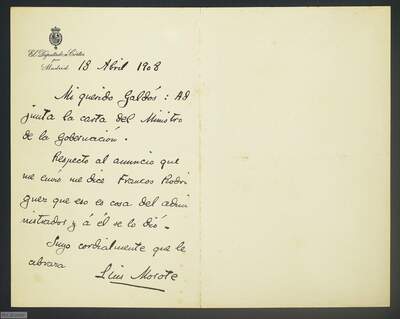 El Diputado a Cortes
por
Madrid
18 Abril 1908
Mi querido Galdós: Ad
junta la carta del Ministro
de la Gobernación.
Respecto al anuncio que
me envió me dice Francos Rodri
guez que eso es cosa del admi
nistrador y á él se lo dió.
Suyo cordialmente que le
abraza
Luis Morote